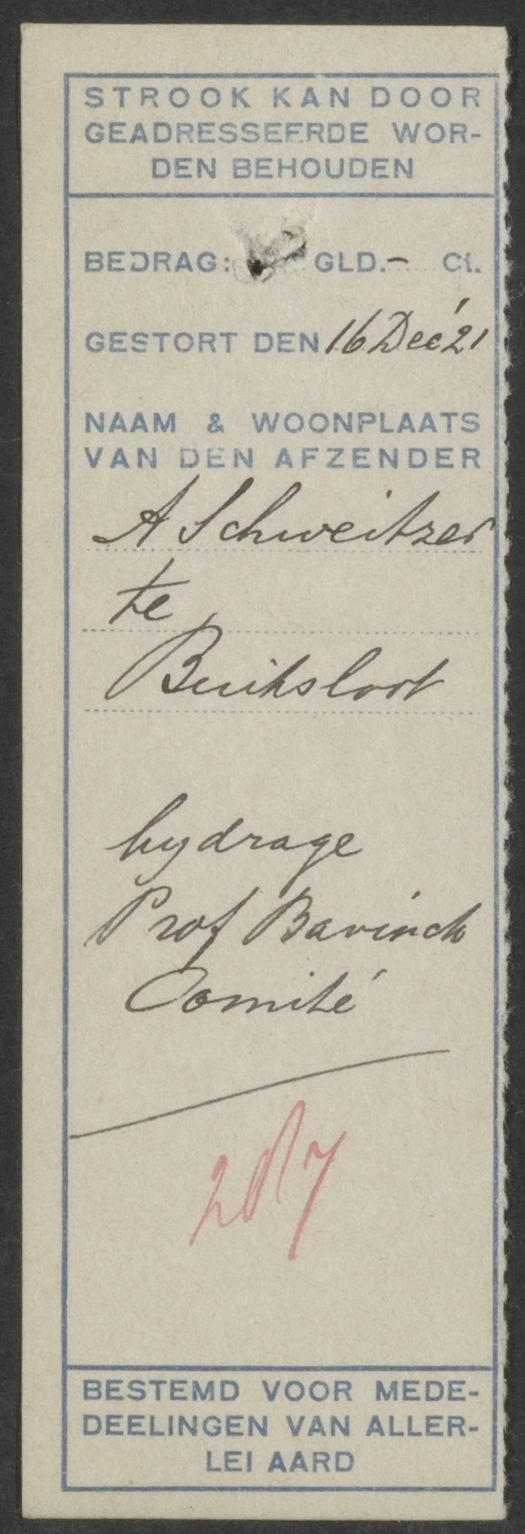 STROOK KAN DOOR
GEADRESSEERDE WOR-
DEN BEHOUDEN
BEDRAG: GLD.- Ct.
GESTORT DEN 16 Dec '21
NAAM & WOONPLAATS
VAN DEN AFZENDER
A Schweitzer
te
Buiksloot
bydrage
Prof Bavinck
Comité
BESTEMD VOOR MEDE-
DEELINGEN VAN ALLER-
LEI AARD